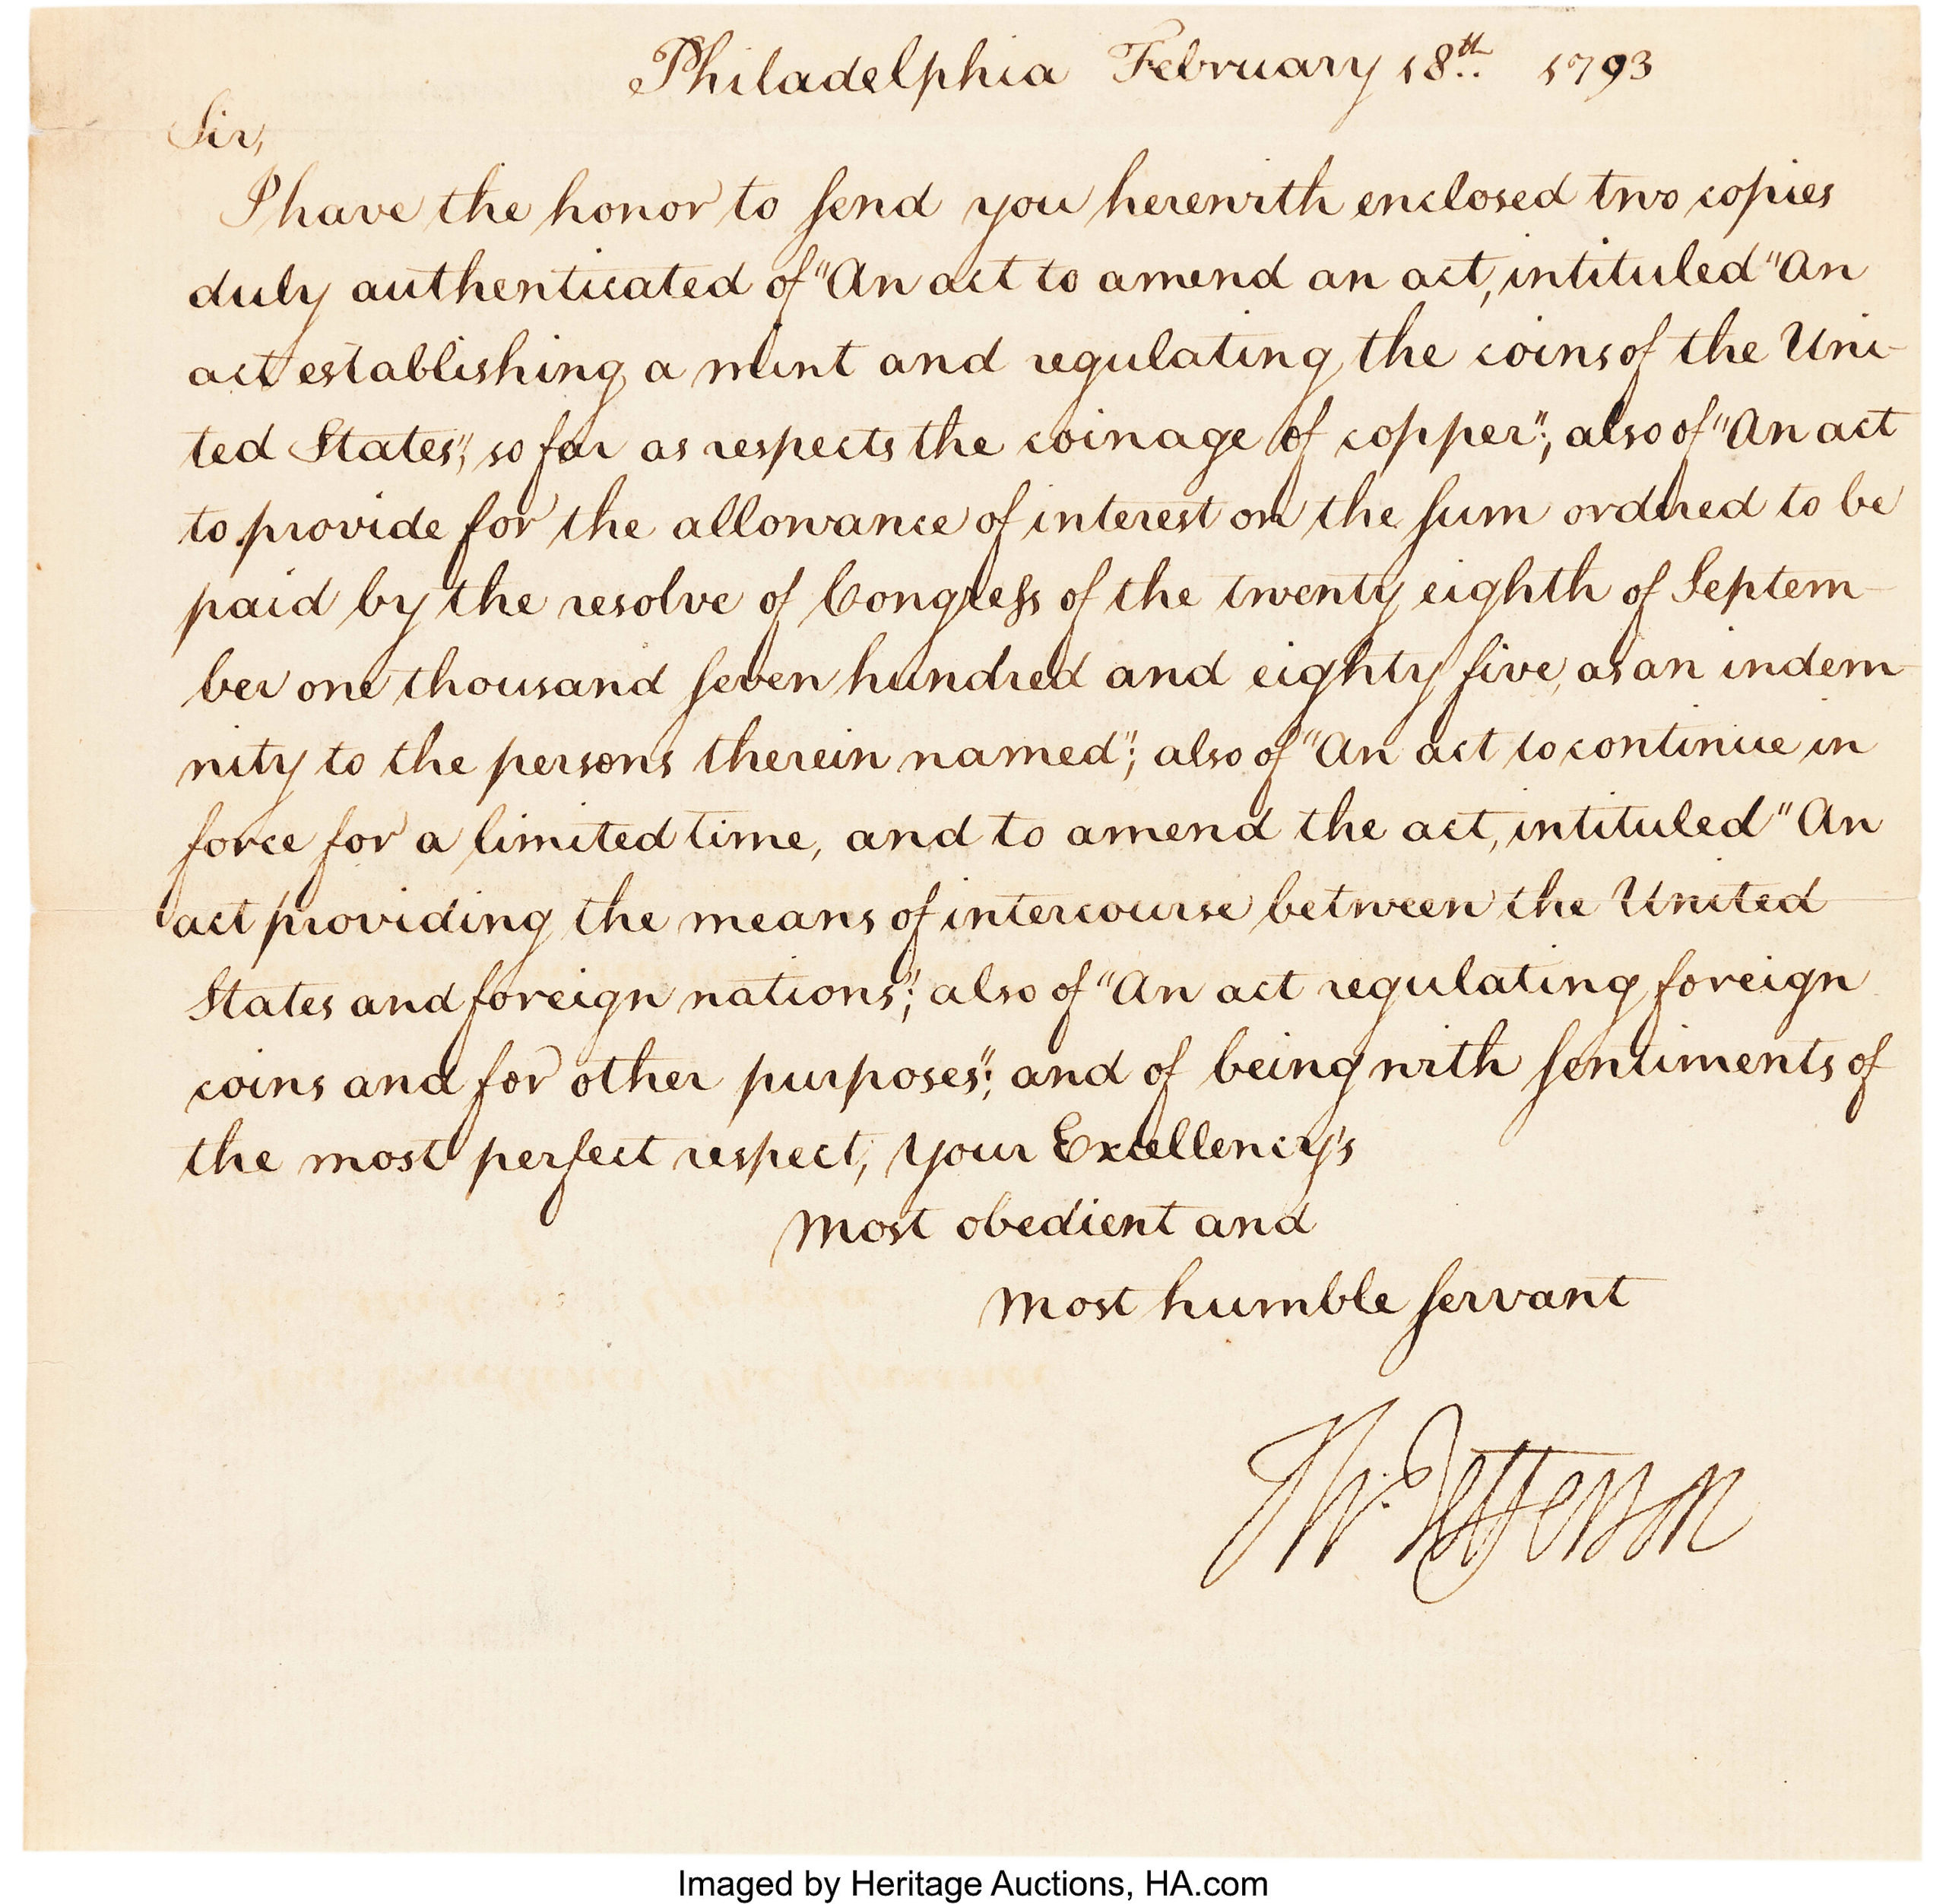 Philadelphia February 18th 1793
Sir,
I have the honor to send you herewith enclosed two copies
duly authenticated of "An act to amend an act, intituled "An
act establishing a mint and regulating the coins of the Uni-
ted States", so far as respects the coinage of copper"; also of "An act
to provide for the allowance of interest on the sum ordered to be
paid by the resolve of Congress of the twenty eighth of Septem-
ber one thousand seven hundred and eighty five, as an indem-
nity to the persons therein named"; also of "An act to continue in
force for a limited time, and to amend the act, intituled "An
act providing the means of intercourse between the United
States and foreign nations"; also of "An act regulating foreign
coins and for other purposes"; and of being with sentiments of
the most perfect respect, your Excellency's
most obedient and
most humble servant
Th: Jefferson
Imaged by Heritage Auctions, HA.com